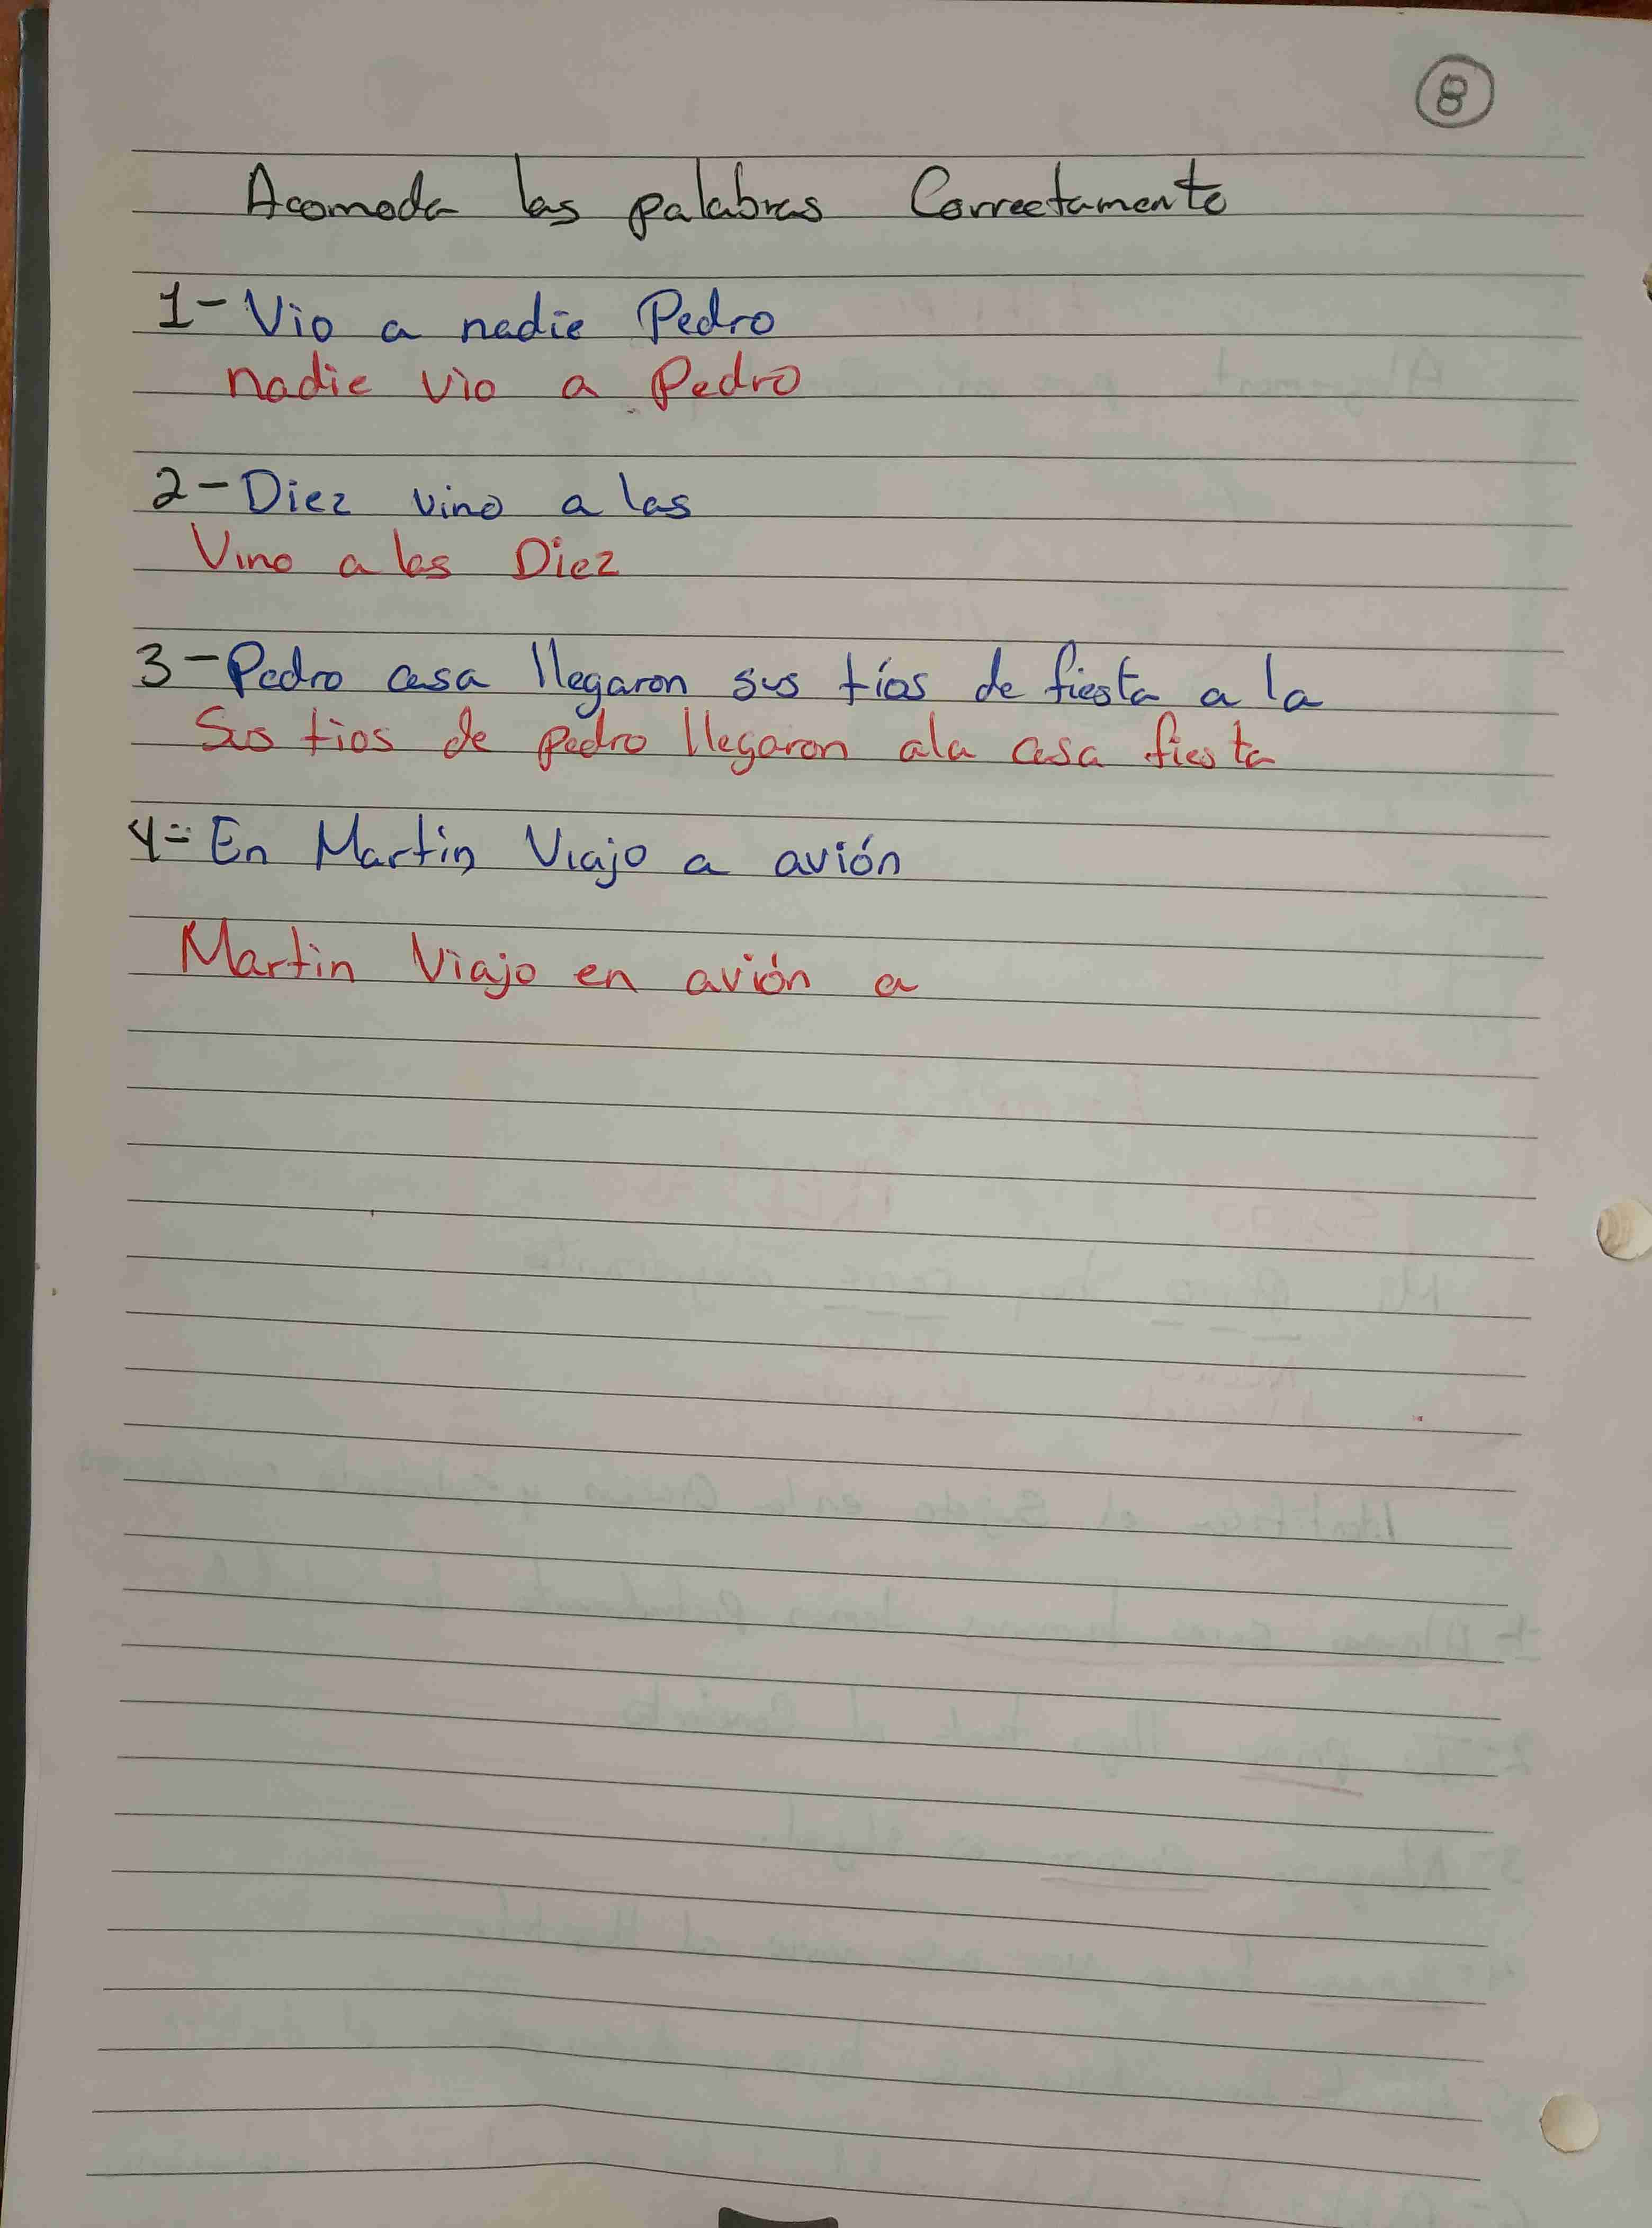 8
Acomoda las palabras Correctamente
1- Vio a nadie Pedro
nadie vio a Pedro
2- Diez vino a las
Vino a las Diez
3- Pedro casa llegaron sus tíos de fiesta a la
Sus tios de pedro llegaron ala casa fiesta
4- En Martin Viajo a avión
Martin Viajo en avión a